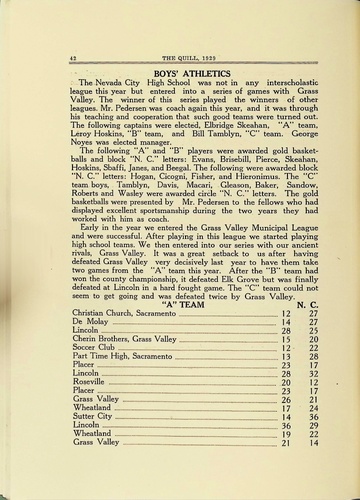 42 THE QUILL, 1929
BOYS' ATHLETICS
The Nevada City High School was not in any interscholastic
league this year but entered into a series of games with Grass
Valley. The winner of this series played the winners of other
leagues. Mr. Pedersen was coach again this year, and it was through
his teaching and cooperation that such good teams were turned out.
The following captains were elected, Elbridge Skeahan, "A" team,
Leroy Hoskins, "B" team, and Bill Tamblyn, "C" team. George
Noyes was elected manager.
The following "A" and "B" players were awarded gold basket-
balls and block "N. C." letters: Evans, Brisebill, Pierce, Skeahan,
Hoskins, Sbaffi, Janes, and Beegal. The following were awarded block
"N. C." letters: Hogan, Cicogni, Fisher, and Hieronimus. The "C"
team boys, Tamblyn, Davis, Macari, Gleason, Baker, Sandow,
Roberts and Wasley were awarded circle "N. C." letters. The gold
basketballs were presented by Mr. Pedersen to the fellows who had
displayed excellent sportsmanship during the two years they had
worked with him as coach.
Early in the year we entered the Grass Valley Municipal League
and were successful. After playing in this league we started playing
high school teams. We then entered into our series with our ancient
rivals, Grass Valley. It was a great setback to us after having
defeated Grass Valley very decisively last year to have them take
two games from the "A" team this year. After the "B" team had
won the county championship, it defeated Elk Grove but was finally
defeated at Lincoln in a hard fought game. The "C" team could not
seem to get going and was defeated twice by Grass Valley.
"A" TEAM N. C.
Christian Church, Sacramento 12 27
De Molay 14 27
Lincoln 28 25
Cherin Brothers, Grass Valley 15 20
Soccer Club 12 22
Part Time High, Sacramento 13 28
Placer 23 17
Lincoln 28 32
Roseville 20 12
Placer 23 17
Grass Valley 26 21
Wheatland 17 24
Sutter City 14 36
Lincoln 36 29
Wheatland 19 22
Grass Valley 21 14